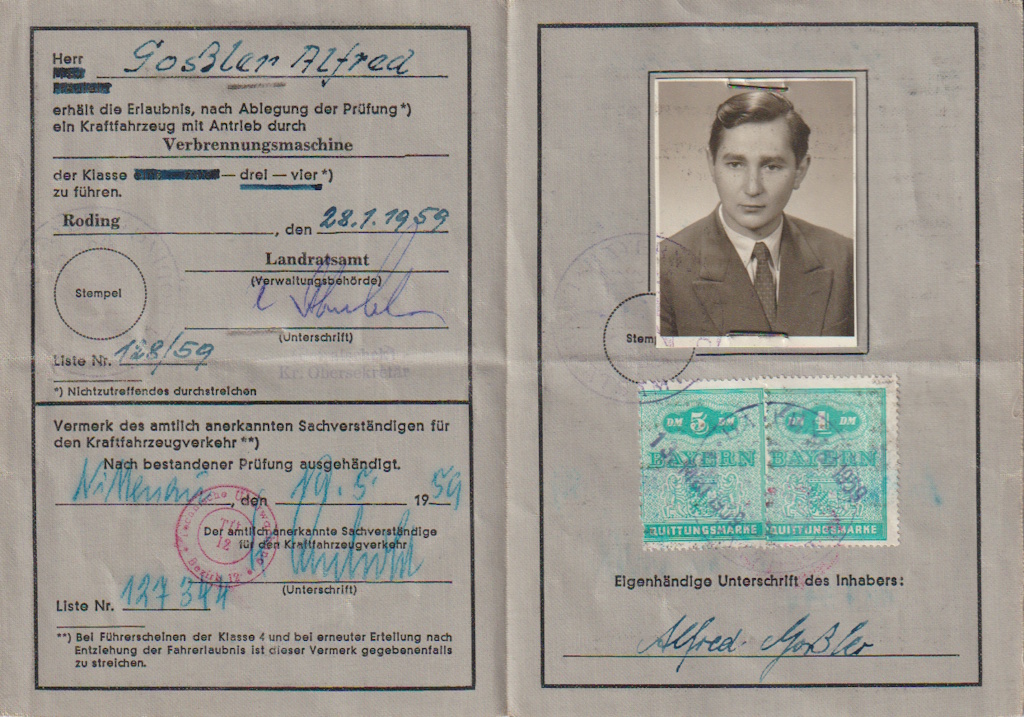 Herr Goßler Alfred
erhält die Erlaubnis, nach Ablegung der Prüfung*)
ein Kraftfahrzeug mit Antrieb durch
Verbrennungsmaschine
der Klasse — drei — vier*)
zu führen.
Roding, den 28.1.1959
Landratsamt
(Verwaltungsbehörde)
Stempel
(Unterschrift)
Liste Nr. 128/59
Kr. Obersekretär
*) Nichtzutreffendes durchstreichen
Vermerk des amtlich anerkannten Sachverständigen für
den Kraftfahrzeugverkehr **)
Nach bestandener Prüfung ausgehändigt.
Nittenau, den 19.5. 1959
Der amtlich anerkannte Sachverständige
für den Kraftfahrzeugverkehr
(Unterschrift)
Liste Nr. 127344
**) Bei Führerscheinen der Klasse 4 und bei erneuter Erteilung nach
Entziehung der Fahrerlaubnis ist dieser Vermerk gegebenenfalls
zu streichen.
DM 5 DM
BAYERN
QUITTUNGSMARKE
DM 1 DM
BAYERN
QUITTUNGSMARKE
Eigenhändige Unterschrift des Inhabers:
Alfred Goßler